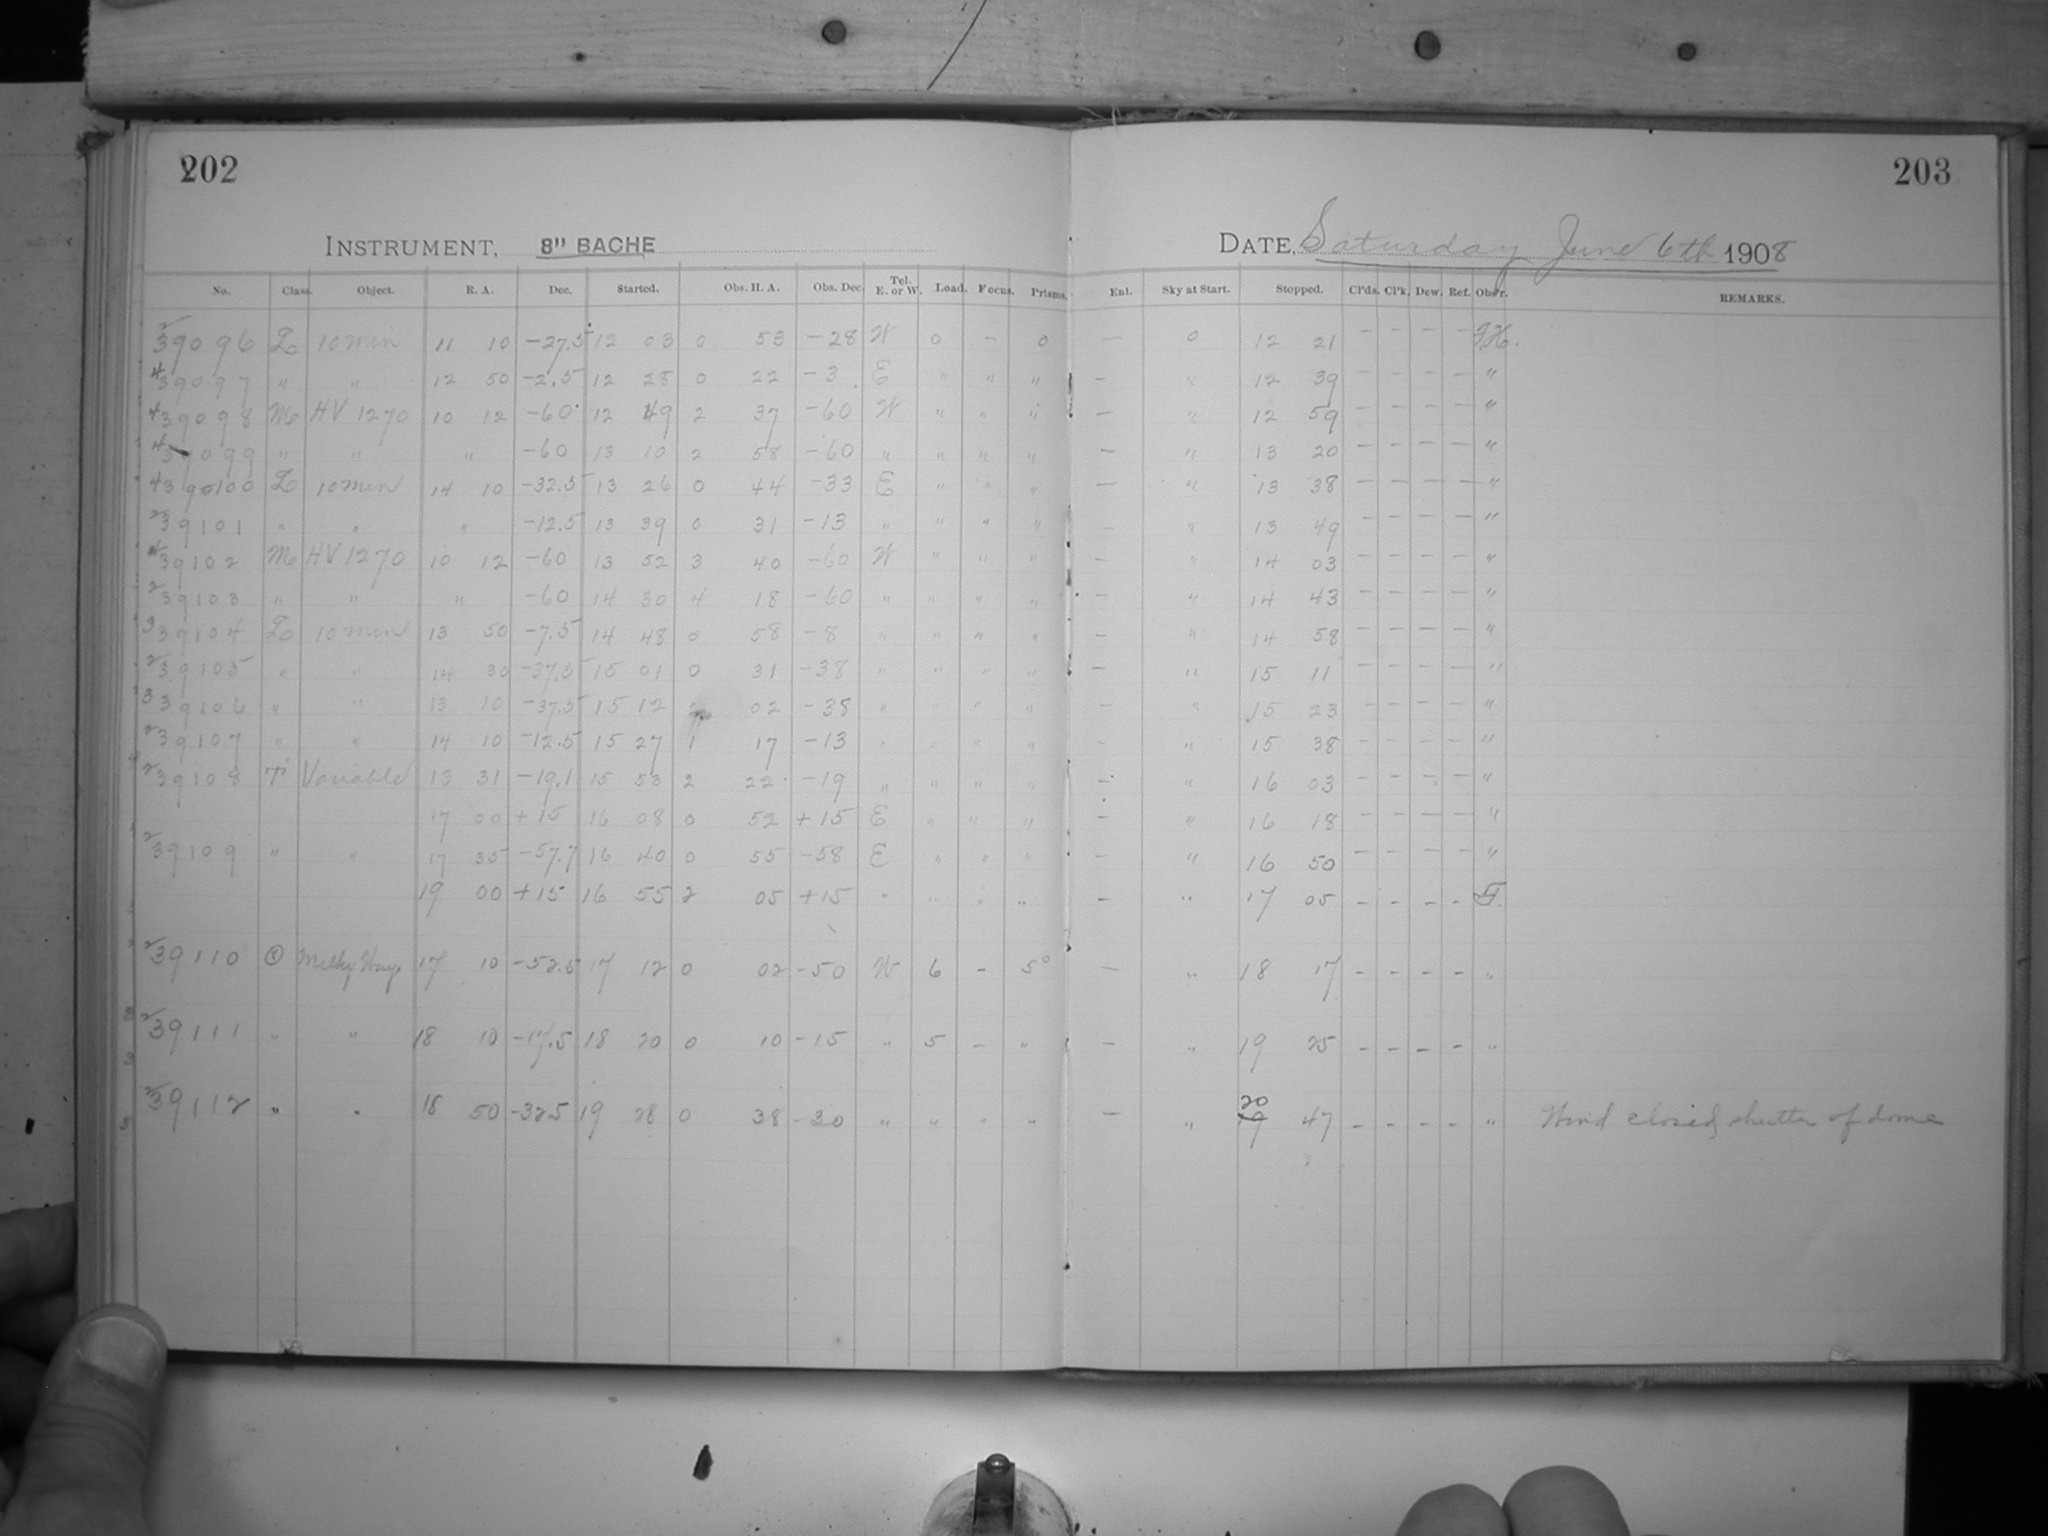 202
203
INSTRUMENT, 8" BACHE
DATE, Saturday June 6th 1908
No. Class. Object. R. A. Dec. Started. Obs. H. A. Obs. Dec. Tel. E. or W. Load. Focus. Prisms. Enl. Sky at Start. Stopped. Cl'ds. Cl'k. Dew. Ref. Obs'r. REMARKS.
39096 L 10 min 11 10 -27.5 12 03 0 53 -28 W 0 - 0 - 0 12 21 - - - -
39097 " " 12 50 -2.5 12 28 0 22 -3 E " " " - " 12 39 - - - - "
39098 M HV 1270 10 12 -60 12 49 2 37 -60 W " " " - " 12 59 - - - - "
39099 " " " -60 13 10 2 58 -60 " " " " - " 13 20 - - - - "
39100 L 10 min 14 10 -32.5 13 26 0 44 -33 E " " " - " 13 38 - - - - "
39101 " " " -12.5 13 39 0 31 -13 " " " " - " 13 49 - - - - "
39102 M HV 1270 10 12 -60 13 52 3 40 -60 W " " " - " 14 03 - - - - "
39103 " " " -60 14 30 4 18 -60 " " " " - " 14 43 - - - - "
39104 L 10 min 13 50 -7.5 14 48 0 58 -8 " " " " - " 14 58 - - - - "
39105 " " 14 30 -37.5 15 01 0 31 -38 " " " " - " 15 11 - - - - "
39106 " " 13 10 -37.5 15 12 02 -38 " " " " - " 15 23 - - - - "
39107 " " 14 10 -12.5 15 27 1 17 -13 " " " " - " 15 38 - - - - "
39108 T Variable 13 31 -19.1 15 53 2 22 -19 " " " " - " 16 03 - - - - "
17 00 +15 16 08 0 52 +15 E " " " - " 16 18 - - - - "
39109 " " 17 35 -57.7 16 40 0 55 -58 E " " " - " 16 50 - - - - "
19 00 +15 16 55 2 05 +15 " " " " - " 17 05 - - - -
39110 Milky Way 17 10 -52.5 17 12 0 02 -50 W 6 - 5° - " 18 17 - - - - "
39111 " " 18 10 -17.5 18 20 0 10 -15 " 5 - " - " 19 25 - - - - "
39112 " " 18 50 -32.5 19 28 0 38 -30 " " " " - " 20 47 - - - - " Wind closed shutter of dome